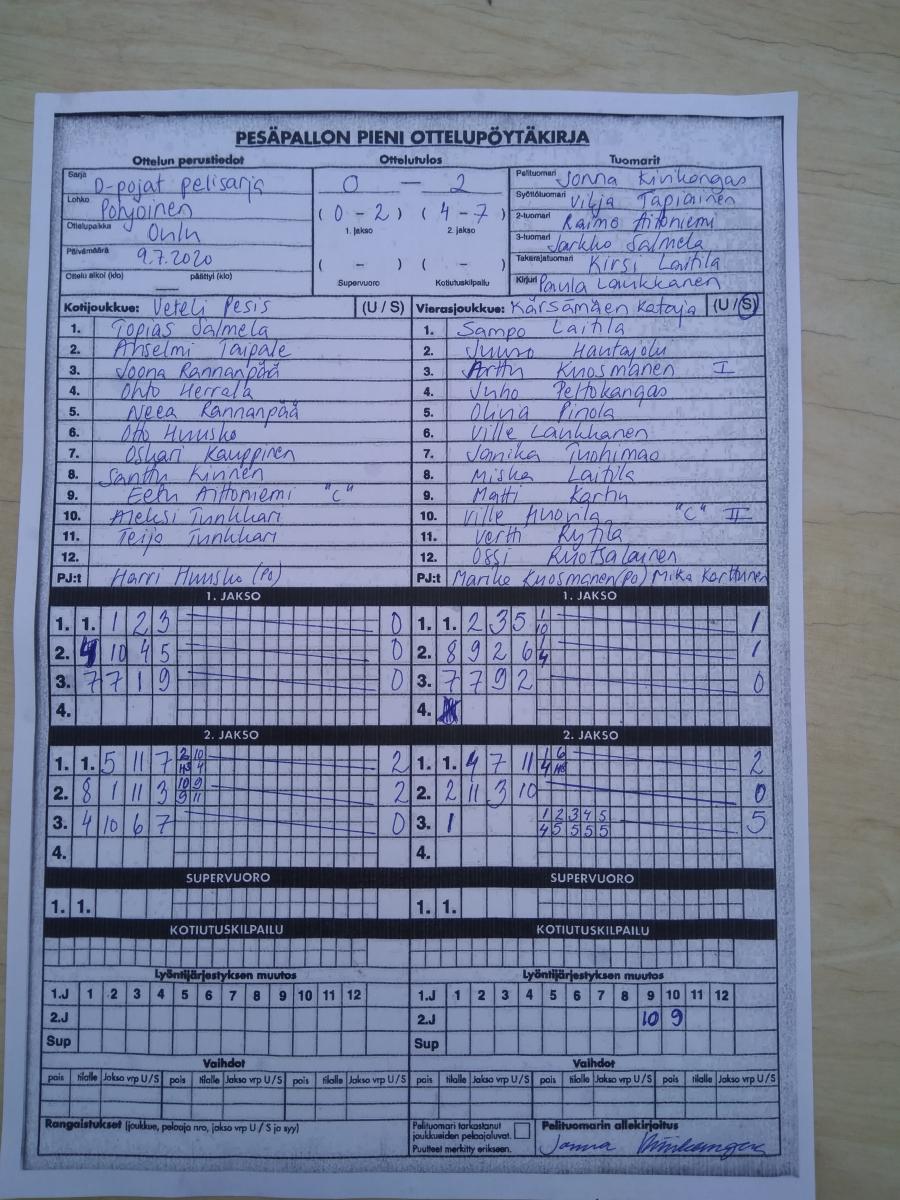 PESÄPALLON PIENI OTTELUPÖYTÄKIRJA
Ottelun perustiedot Ottelutulos Tuomarit
Sarja D-pojat pelisarja
Lohko Pohjoinen
Ottelupaikka Oulu
Päivämäärä 9.7.2020
Ottelu alkoi (klo) päättyi (klo)
0 — 2
( 0 - 2 ) ( 4 - 7 )
1. jakso 2. jakso
( - ) ( - )
Supervuoro Kotiutuskilpailu
Pelituomari Jonna Kinkongas
Syöttötuomari Vilja Tapiainen
2-tuomari Raimo Aittoniemi
3-tuomari Jarkko Salmela
Takarajatuomari Kirsi Laitila
Kirjuri Paula Laukkanen
Kotijoukkue: Veteli Pesis (U / S)
1. Topias Salmela
2. Anselmi Taipale
3. Joona Rannanpää
4. Ohto Herrala
5. Neea Rannanpää
6. Otto Huusko
7. Oskari Kauppinen
8. Santtu Kinnen
9. Eetu Aittoniemi "C"
10. Aleksi Tunkkari
11. Teijo Tunkkari
12.
PJ:t Harri Huusko (PO)
Vierasjoukkue: Kärsämäen Kataja (U / S)
1. Sampo Laitila
2. Juuso Hautajoki
3. Arttu Kuosmanen I
4. Juho Peltokangas
5. Olivia Pinola
6. Ville Laukkanen
7. Janika Tuohimaa
8. Miska Laitila
9. Matti Karhu
10. Ville Huovila "C" II
11. Vertti Rytilä
12. Ossi Ruotsalainen
PJ:t Marika Kuosmanen (PO) Mika Karttunen
1. JAKSO
1. 1. 1 2 3 0
2. 4 10 4 5 0
3. 7 7 1 9 0
4.
1. JAKSO
1. 1. 2 3 5 1 10 1
2. 8 9 2 6 1 4 1
3. 7 7 9 2 0
4.
2. JAKSO
1. 1. 5 11 7 2 10 HS 4 2
2. 8 1 11 3 10 9 9 11 2
3. 4 10 6 7 0
4.
2. JAKSO
1. 1. 4 7 11 1 6 4 HS 2
2. 2 11 3 10 0
3. 1 1 2 3 4 5 4 5 5 5 5 5
4.
SUPERVUORO SUPERVUORO
1. 1. 1. 1.
KOTIUTUSKILPAILU KOTIUTUSKILPAILU
Lyöntijärjestyksen muutos
1.J 1 2 3 4 5 6 7 8 9 10 11 12
2.J
Sup
Lyöntijärjestyksen muutos
1.J 1 2 3 4 5 6 7 8 9 10 11 12
2.J 10 9
Sup
Vaihdot Vaihdot
pois tilalle Jakso vrp U / S pois tilalle Jakso vrp U / S pois tilalle Jakso vrp U / S
pois tilalle Jakso vrp U / S pois tilalle Jakso vrp U / S pois tilalle Jakso vrp U / S
Rangaistukset (joukkue, pelaaja nro, jakso vrp U / S ja syy)
Pelituomari tarkastanut
joukkueiden pelaajaluvat.
Puutteet merkitty erikseen.
Pelituomarin allekirjoitus